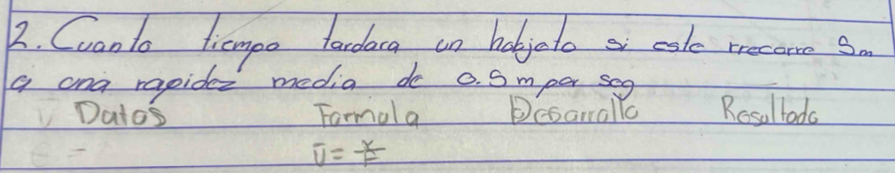 2. Cuanto tiempo tardara un hobjeto si este rrecorre 5m
a una rapidez media de 0.5 m por seg
Datos Formula Desarrollo Resultado
v̄ = x/t